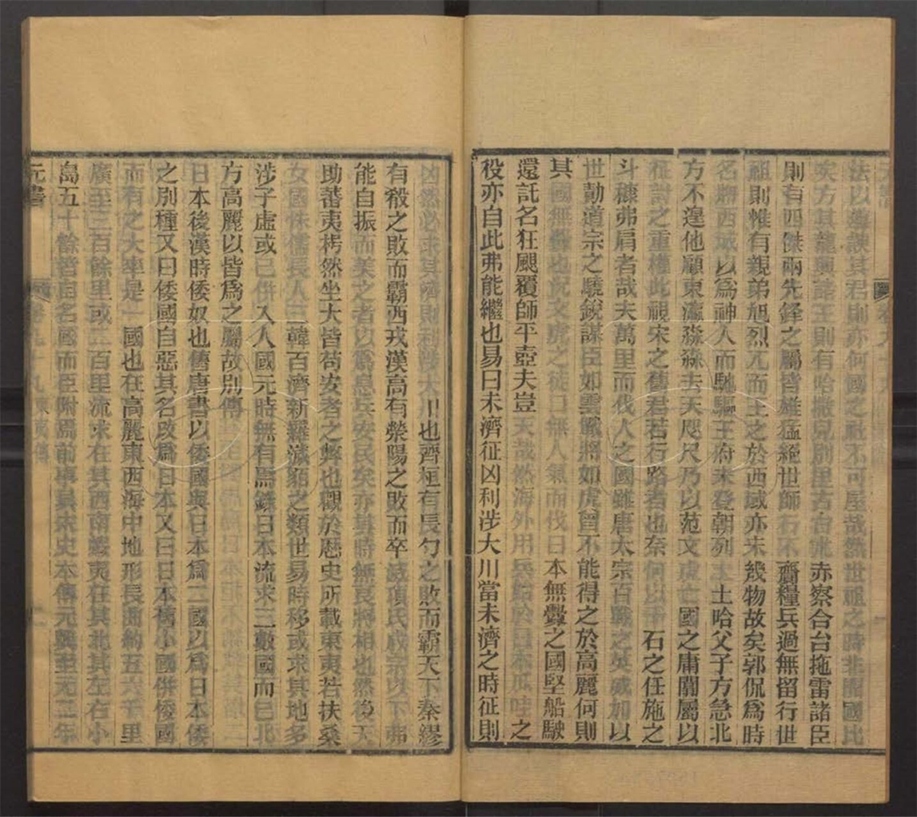 法以 其君則亦何國之 不可屋哉然世祖之時非開國比
矣方其 諸王則有哈撒兒別里古台 赤察合台拖雷諸臣
則有四傑兩先鋒之屬皆雄猛絕世師行不齎糧兵過無留行世
祖則惟有親弟旭烈兀而王之於西域亦未幾物故矣郭侃爲時
名將西域以爲神人而馳驅王府未登朝列土土哈父子方急北
方不遑他顧東瀛淼淼去天咫尺乃以范文虎亡國之庸閫屬以
征討之重權此視宋之舊君若行路者也奈何以 石之任施之
斗 弗肩者哉夫萬里而伐人之國雖唐太宗百戰之英威加以
世勣道宗之驍銳謀臣如雲 將如虎曾不能得之於高麗何則
其國無釁也況文虎之徒口無人氣而伐日本無釁之國堅船駛
還託名狂颶覆師平壺夫豈天哉然海外用兵 於日本瓜哇之
役亦自此弗能繼也易曰未濟征凶利涉大川當未濟之時征則
凶然必求其濟則利涉大川也齊桓有長勺之敗而霸天下秦繆
有殽之敗而霸西戎漢高有滎陽之敗而卒滅項氏 宗以下弗
能自振而美之者以爲息兵安民矣亦其時無良將相也然後天
助蕃夷 然坐大皆苟安者之弊也觀於歷史所載東夷若扶桑
女國侏儒長人三韓百濟新羅濊貊之類世易時移或求其地多
涉子虛或已併入人國元時無有焉錄日本流求二數國而已北
方高麗以皆爲之屬故別傳
日本後漢時倭奴也舊唐書以倭國與日本爲二國以爲日本倭
之別種又曰倭國自惡其名改爲日本又曰日本舊小國併倭國
而有之大率是一國也在高麗東西海中地形長 約五六千里
廣至三百餘里或二百里流求在其西南蝦夷在其北其左右小
島五十餘皆自名國而臣附焉前事具宋史本傳元興至元二年
元書